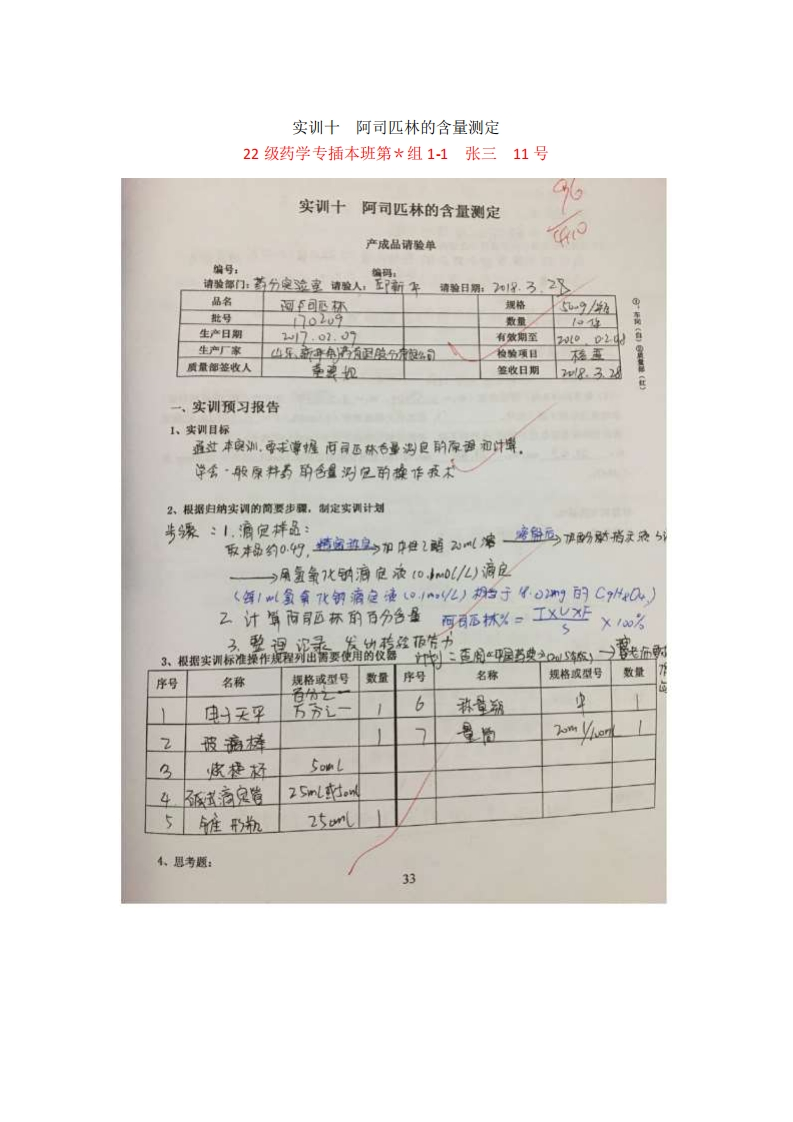 实训十 阿司匹林的含量测定
22 级药学专插本班第*组 1-1 张三 11 号
96
实训十 阿司匹林的含量测定
产成品请验单
编号: 编码:
请验部门: 药分实验室 请验人: 请验日期: 2018.3.28
品名 阿司匹林 规格
批号 170209 数量
生产日期 2017.02.09 有效期至
生产厂家 检验项目 检查
质量部签收人 签收日期 2018.3.28
①,车间(白)②质量部(红)
一、实训预习报告
1、实训目标
通过本实训,要求掌握阿司匹林含量测定的原理和计算。
学会一般原料药的含量测定的操作技术
2、根据归纳实训的简要步骤,制定实训计划
步骤:1.滴定样品:
取本品约0.4g, 精密称定→加中性乙醇20ml溶 溶解后→加酚酞指示液
→用氢氧化钠滴定液(0.1mol/L)滴定
(每1ml氢氧化钠滴定液(0.1mol/L)相当于18.02mg的C9H8O4)
2.计算阿司匹林的百分含量 阿司匹林% = T×V×F/S ×100%
3.整理记录 发出检验报告书
3、根据实训标准操作规程列出需要使用的仪器
序号 名称 规格或型号 数量 序号 名称 规格或型号 数量
1 电子天平 百分之一 万分之一 1 6 称量纸 中 1
2 玻璃棒 1 7 量筒 1
3 烧杯 50ml
4 碱式滴定管 25ml或50ml
5 锥形瓶 250ml 1
4、思考题:
33